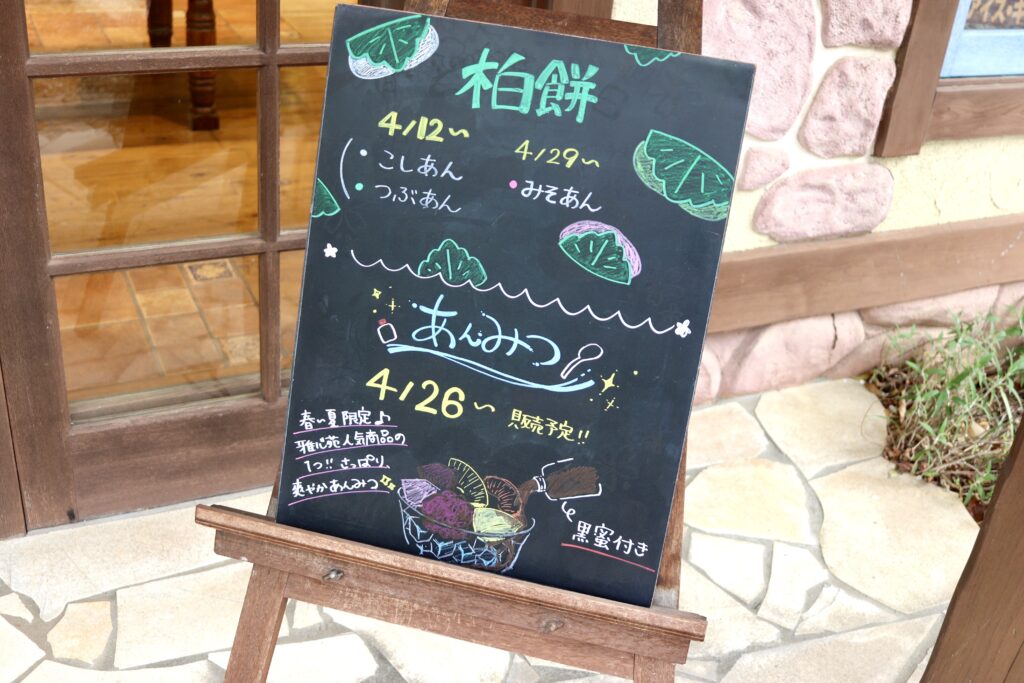 柏餅
4/12〜
・こしあん
・つぶあん
4/29〜
・みそあん
あんみつ
4/26〜 販売予定!!
春い夏限定♪
雅心苑人気商品の
1つ!! さっぱり
爽やかあんみつ
黒蜜付き
アイス・キ